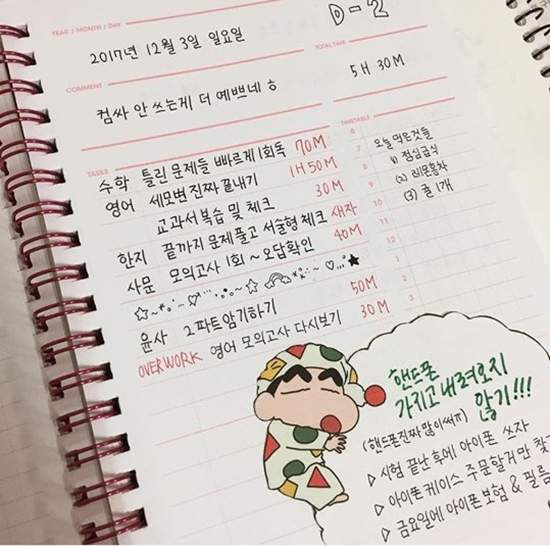 YEAR / MONTH / DAY
D-2
2017년 12월 3일 일요일
COMMENT
TOTAL TIME
컴싸 안 쓰는게 더 예쁘네 ㅎ
5H 30M
TASKS
TIMETABLE
수학 틀린 문제들 빠르게 1회독 70M
영어 세모변 진짜 끝내기 1H 50M
교과서 복습 및 체크 30M
한지 끝까지 문제 풀고 서술형 체크 새자
사문 모의고사 1회 ~ 오답확인 40M
윤사 2파트 암기하기 50M
OVERWORK 영어 모의고사 다시보기 30M
6
7
8
9
10
11
12
1
2
3
오늘 먹은것들
(1) 점심급식
(2) 레몬홍차
(3) 귤 1개
핸드폰
가지고 내려오지
않기!!!
(핸드폰 진짜 많이써ㅠ)
▷ 시험 끝난 후에 아이폰 쓰자
▷ 아이폰 케이스 주문할거만 찾
▷ 금요일에 아이폰 보험 & 필름